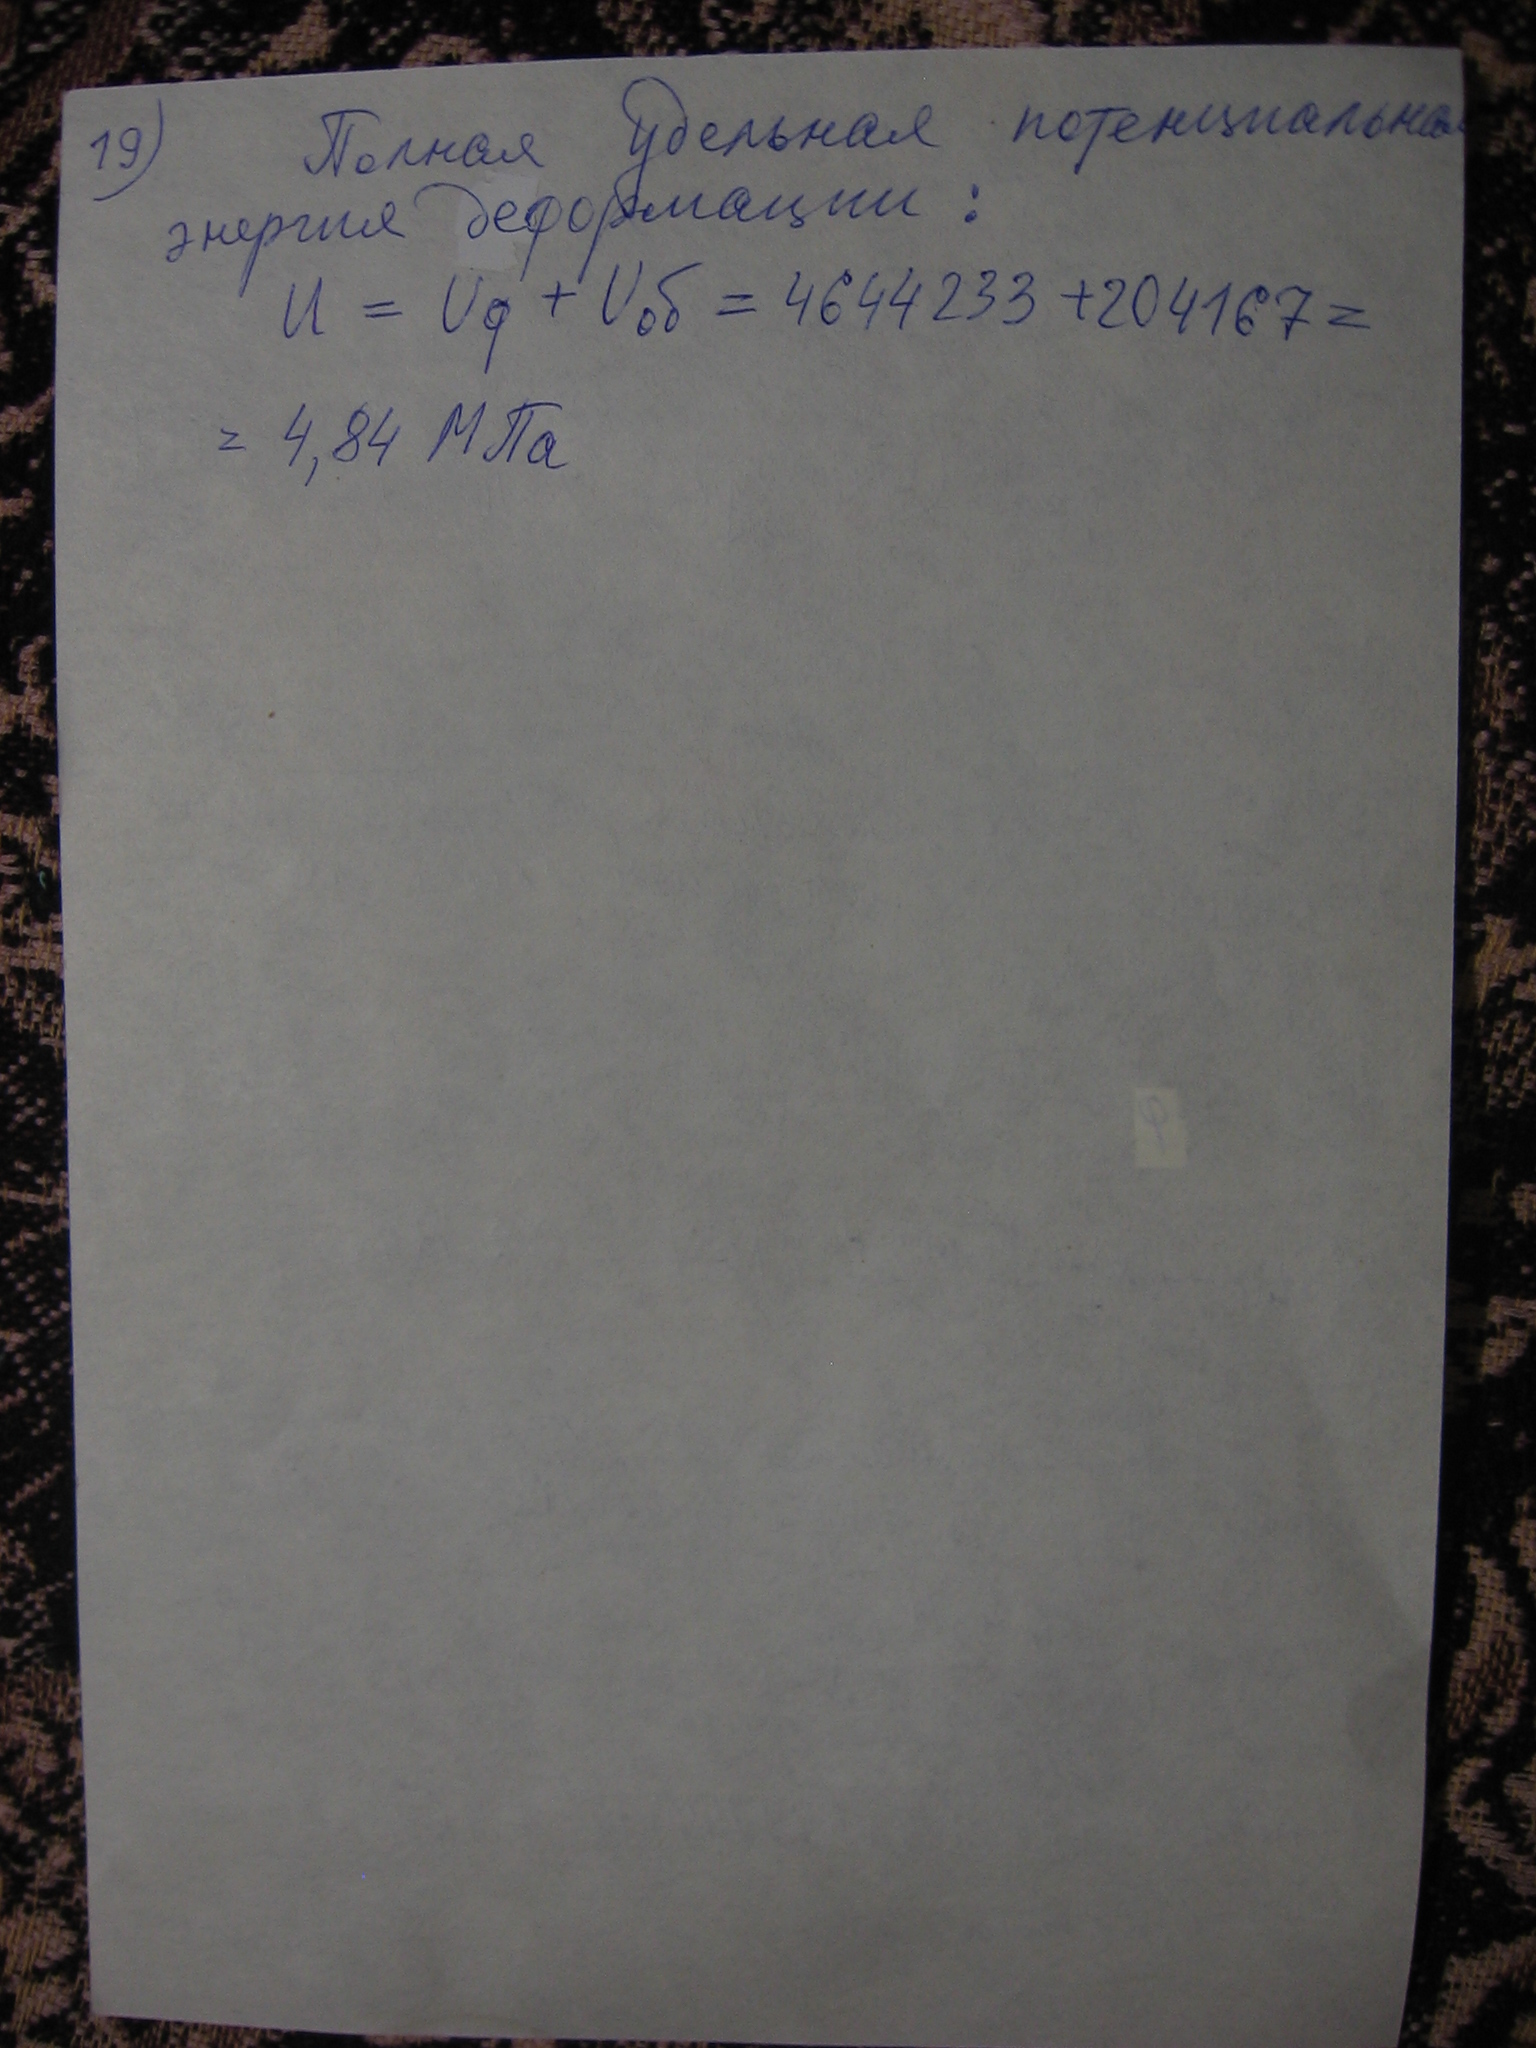 19) Полная удельная потенциальная
энергия деформации:
U = Uф + Uоб = 4644233 + 204167 =
= 4,84 МПа